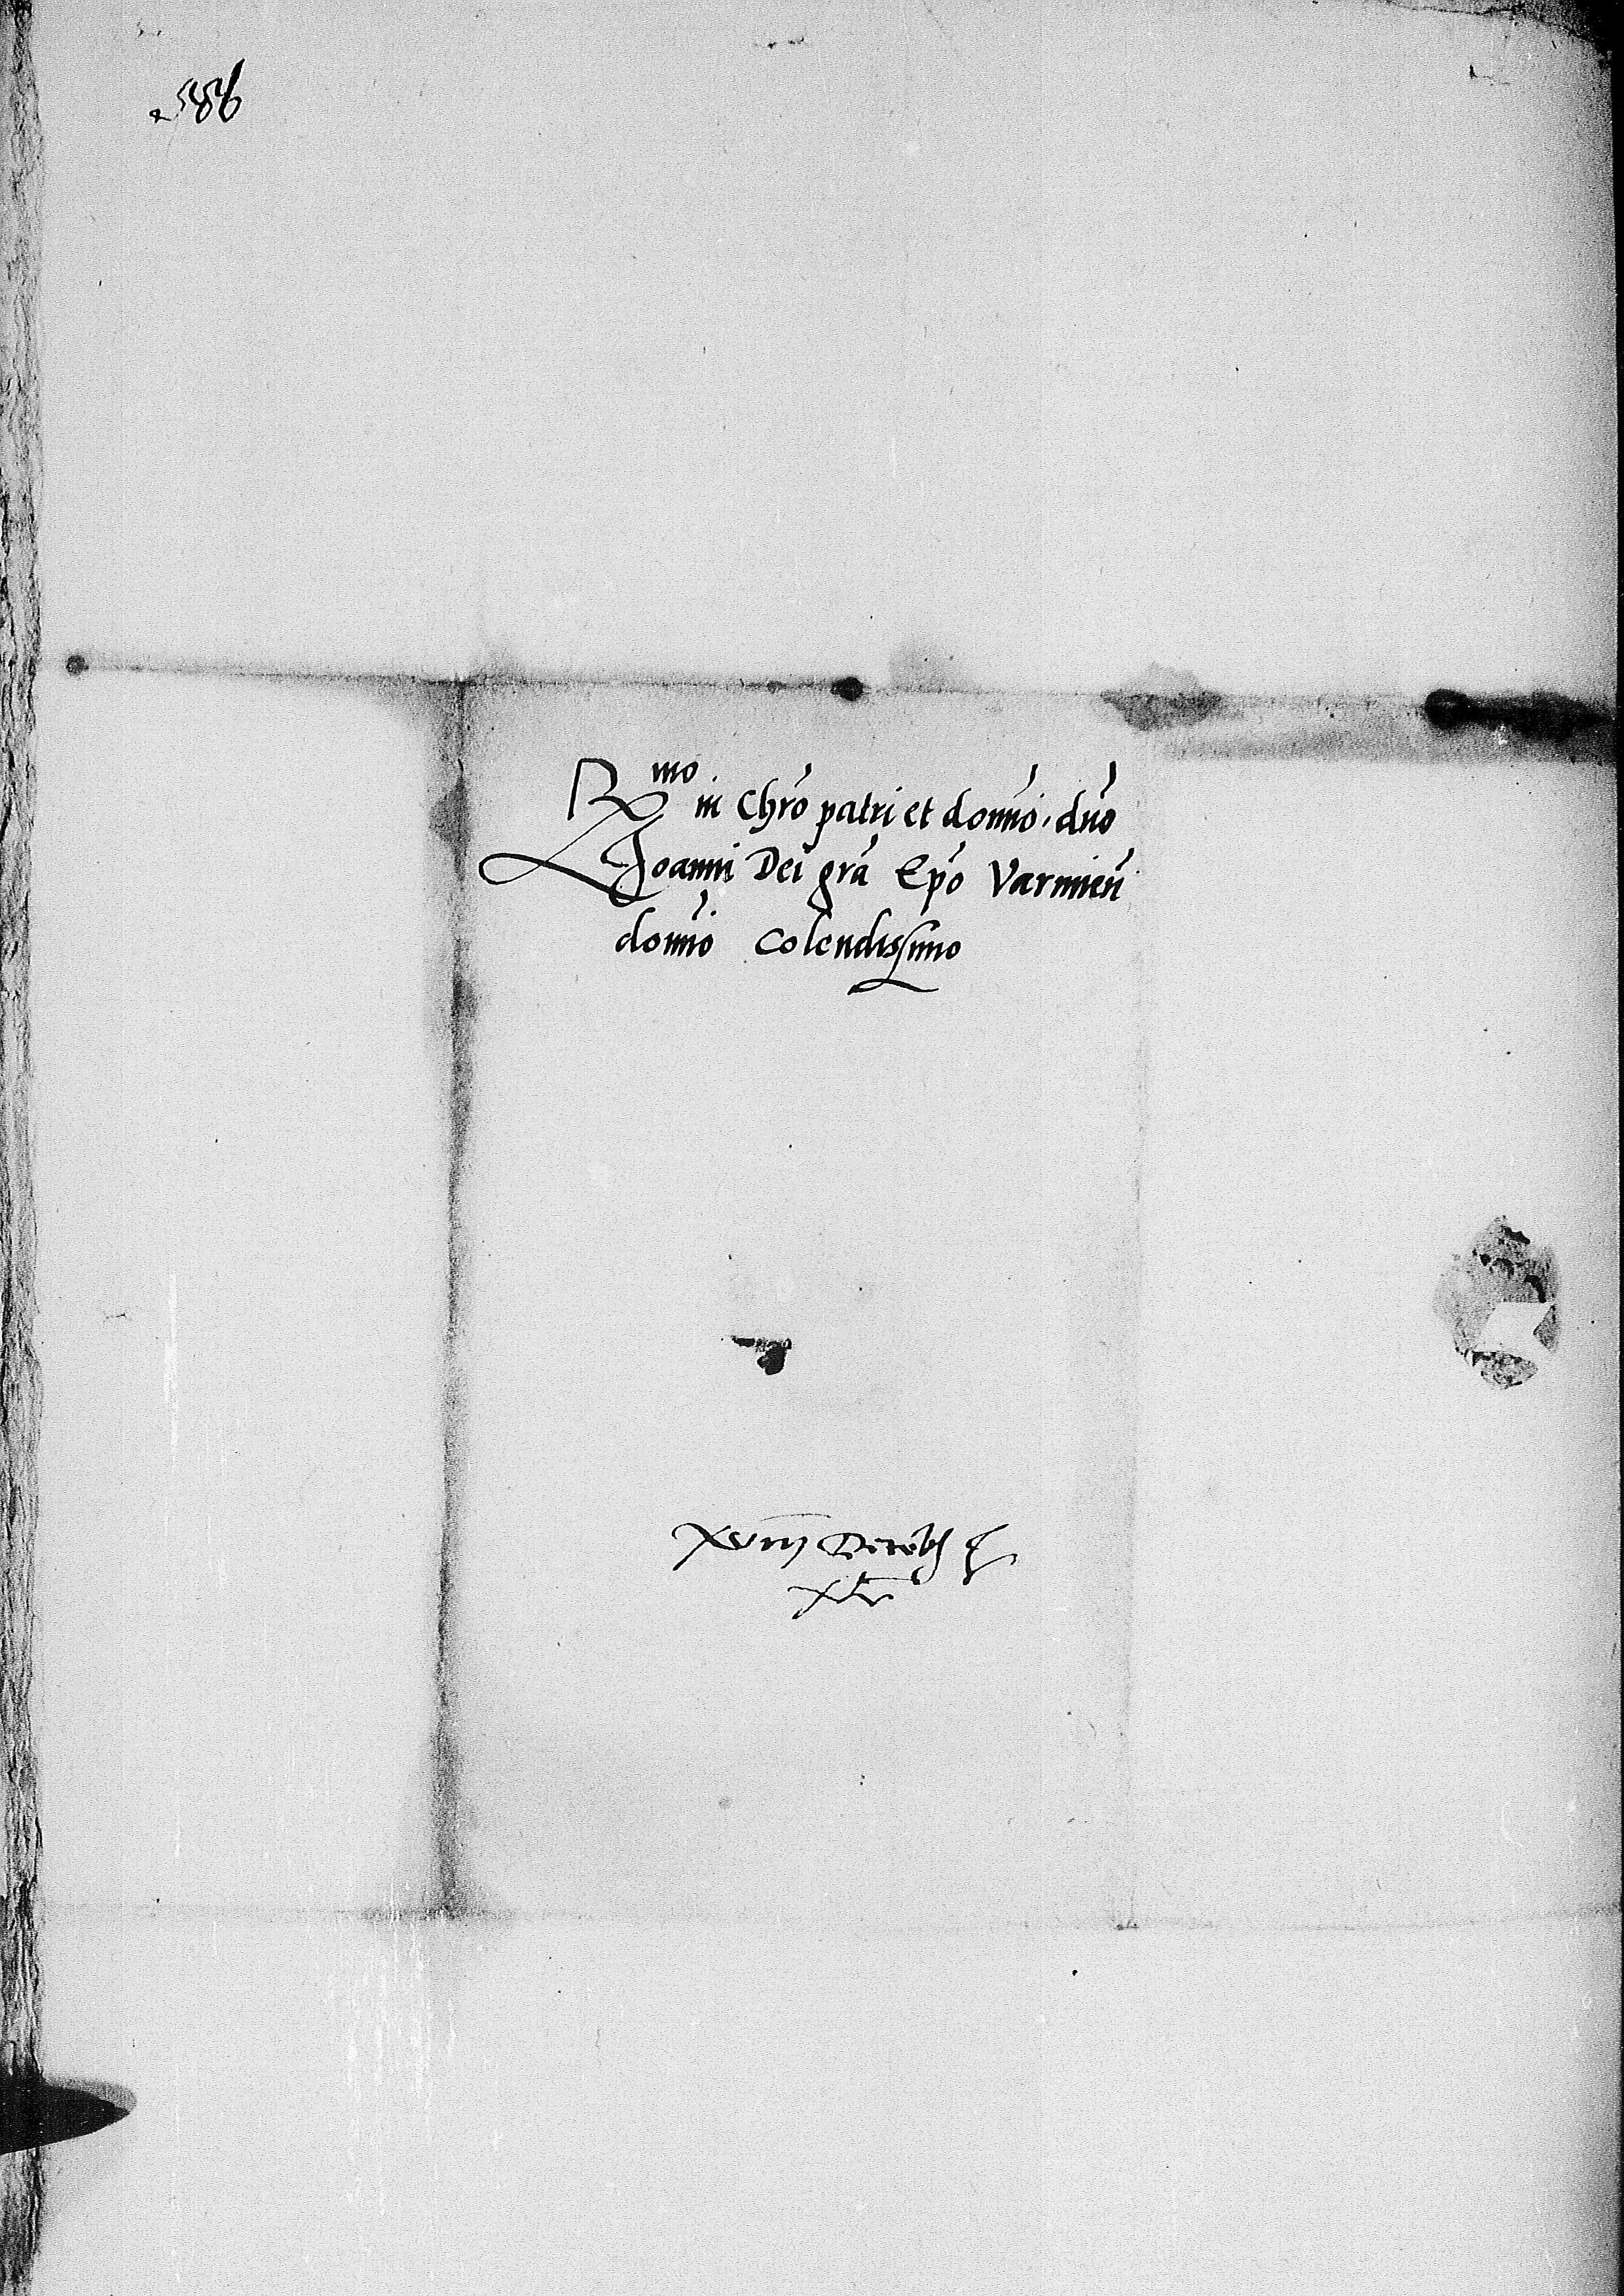 R mo in Chro patri et domino, dno
Joanni Dei gra Epo Varmien
domino Colendissimo
XVIII Decembris
XLV